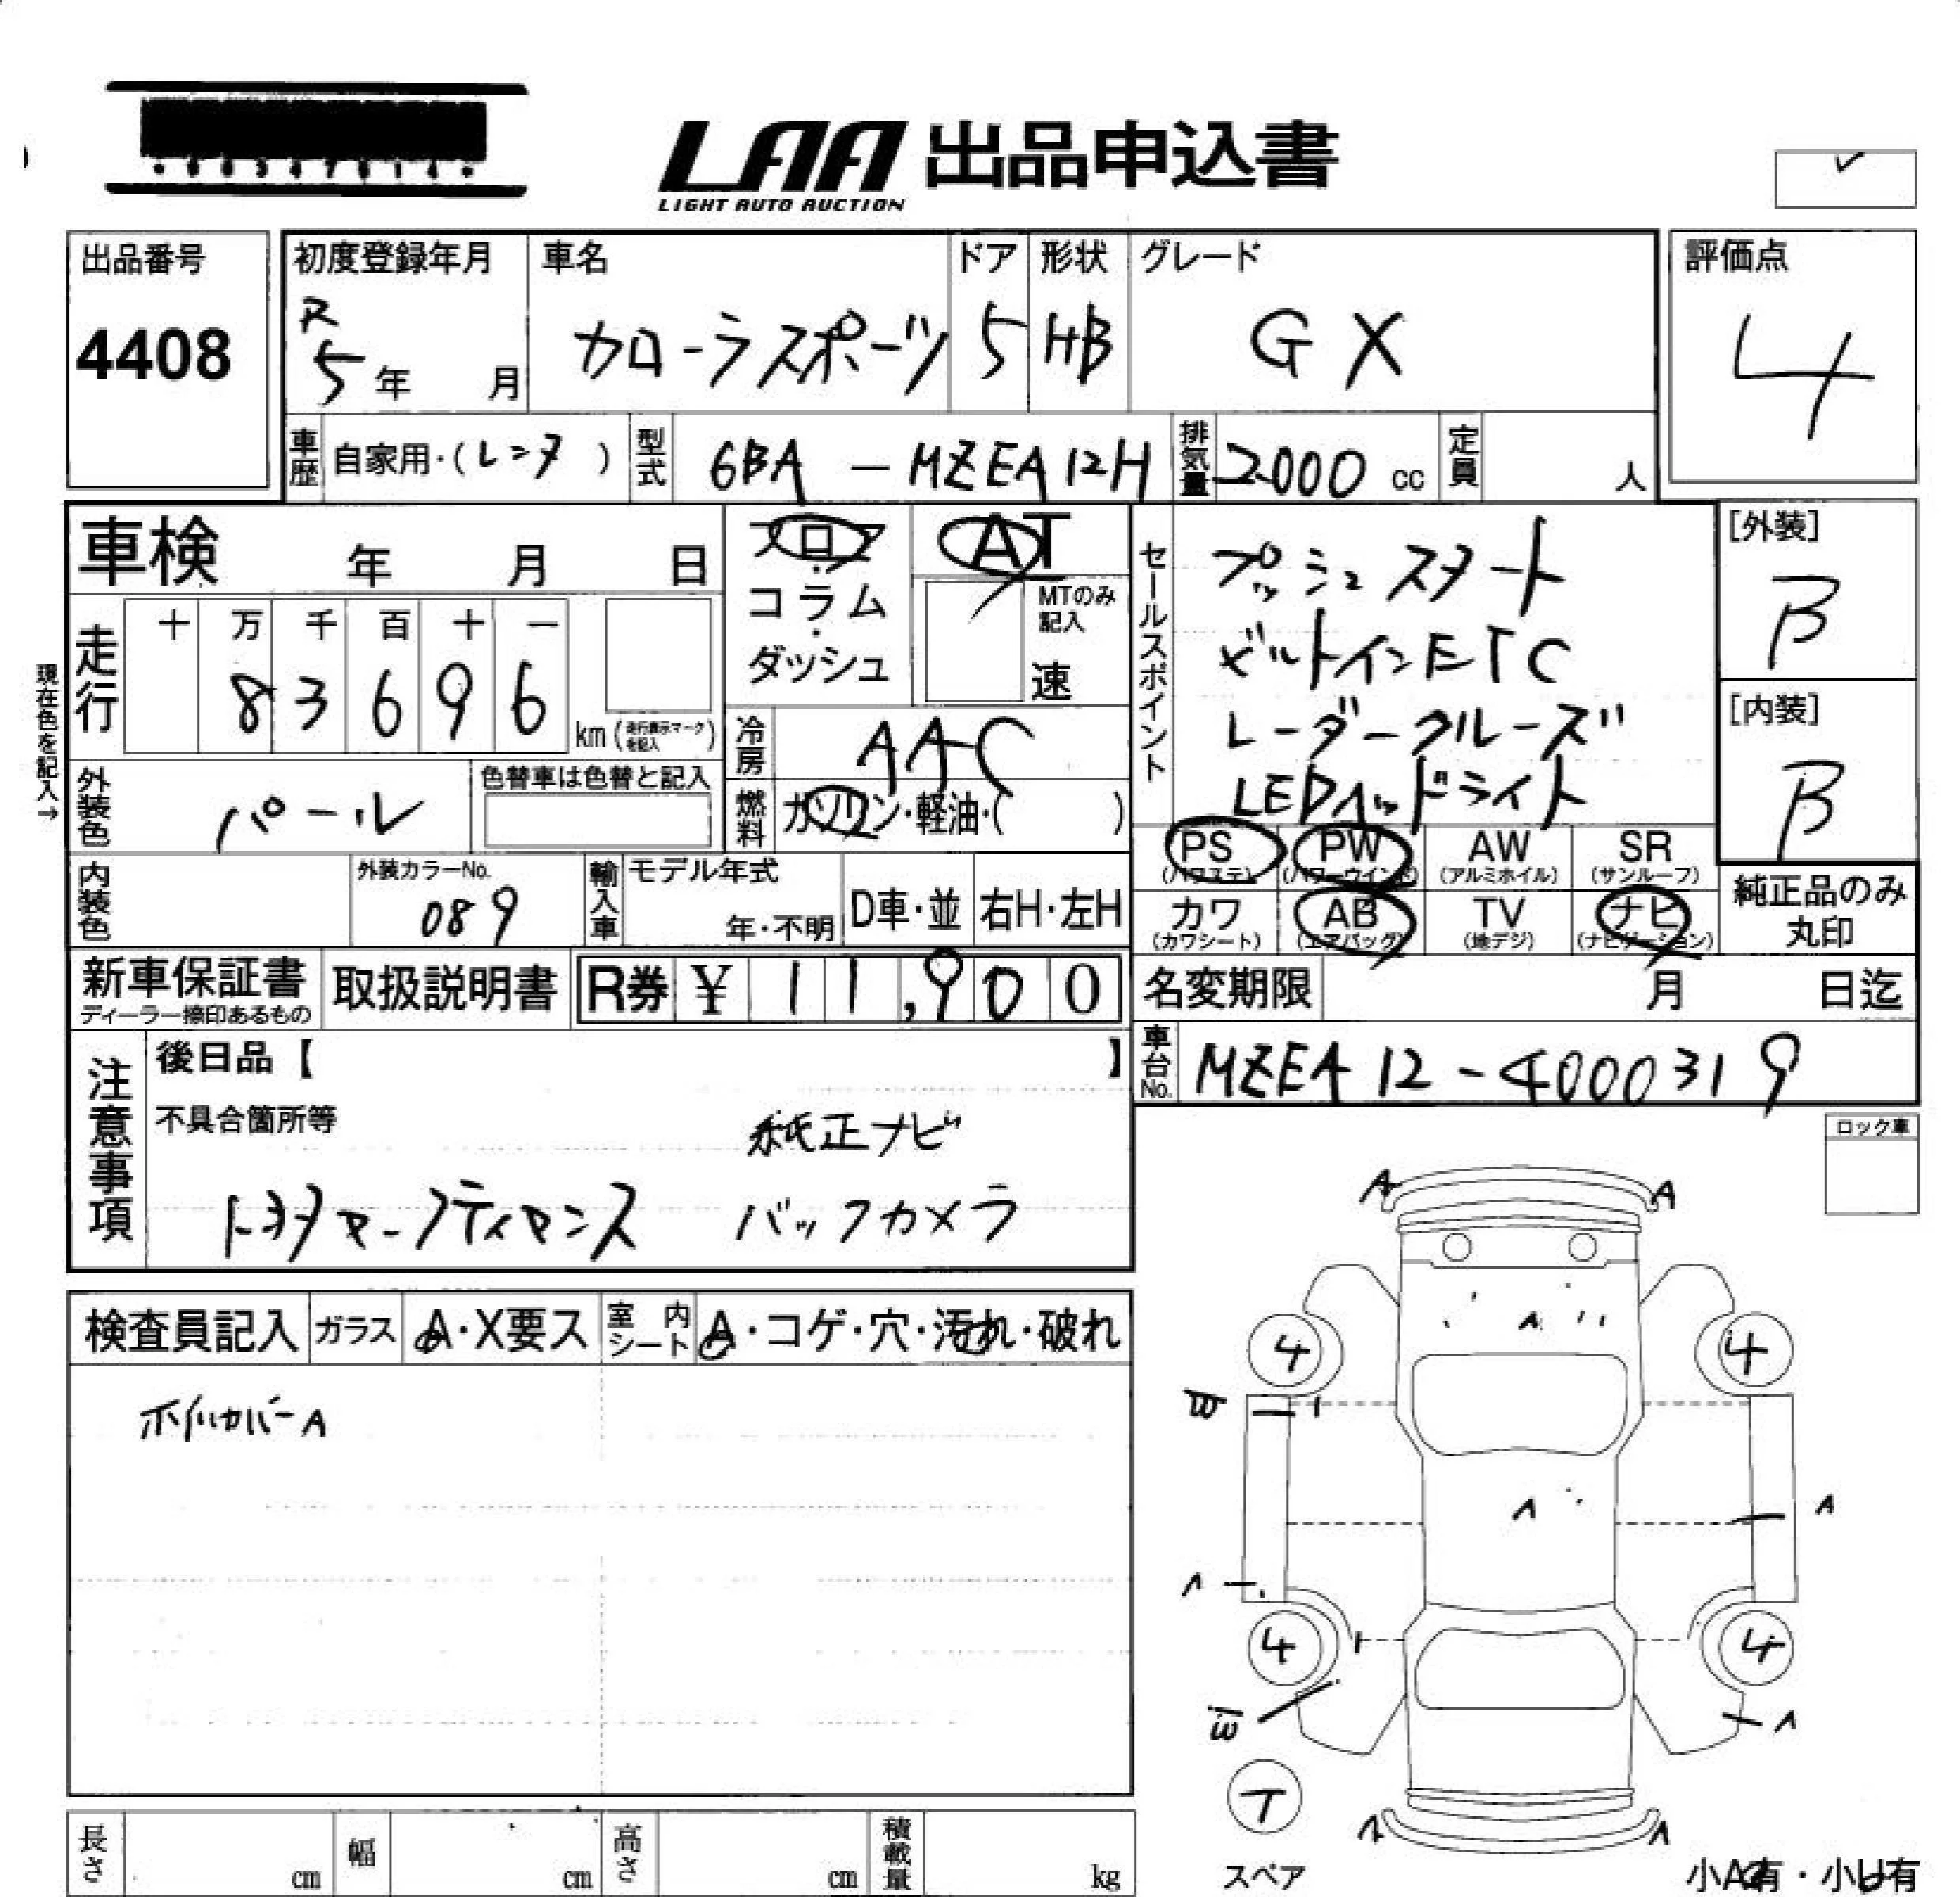 LAA 出品申込書
LIGHT AUTO AUCTION
出品番号
4408
初度登録年月
R
5年 月
車名
カローラスポーツ
ドア
5
形状
HB
グレード
GX
評価点
4
車歴 自家用・(レンタ)
型式 6BA-MZEA12H
排気量 2000cc
定員 人
車検 年 月 日
フロア・コラム・ダッシュ
AT
MTのみ記入
速
現在色を記入→
走行
十 万 千 百 十 一
8 3 6 9 6
km(走行表示マークを記入)
冷房 AAC
燃料 ガソリン・軽油・( )
外装色 パール
色替車は色替と記入
内装色
外装カラーNo.
089
輸入車
モデル年式
年・不明
D車・並
右H・左H
セールスポイント
プッシュスタート
ビルトインETC
レーダークルーズ
LEDヘッドライト
[外装]
B
[内装]
B
PS (パワステ)
PW (パワーウインド)
AW (アルミホイル)
SR (サンルーフ)
カワ (カワシート)
AB (エアバッグ)
TV (地デジ)
ナビ (ナビゲーション)
純正品のみ丸印
新車保証書
ディーラー捺印あるもの
取扱説明書
R券 ¥ 11,900
名変期限 月 日迄
車台No. MZEA12-4000319
注意事項
後日品【 】
不具合箇所等
純正ナビ
バックカメラ
ロック車
検査員記入
ガラス A・X要ス
室内シート A・コゲ・穴・汚れ・破れ
ホイルカバーA
A A
A
4 4
A
A
A
4 4
A
T
スペア
A A
小A有・小U有
長さ cm
幅 cm
高さ cm
積載量 kg